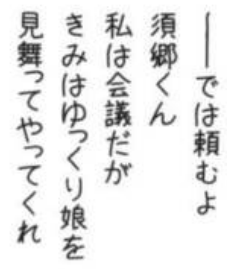 ──では頼むよ
須郷くん
私は会議だが
きみはゆっくり娘を
見舞ってやってくれ